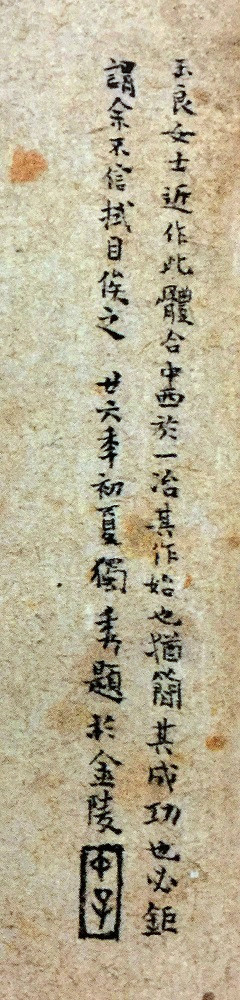 玉良女士近作此體合中西於一冶其作始也猶簡其成功也必鉅
謂余不信拭目俟之 廿六年初夏獨秀題於金陵